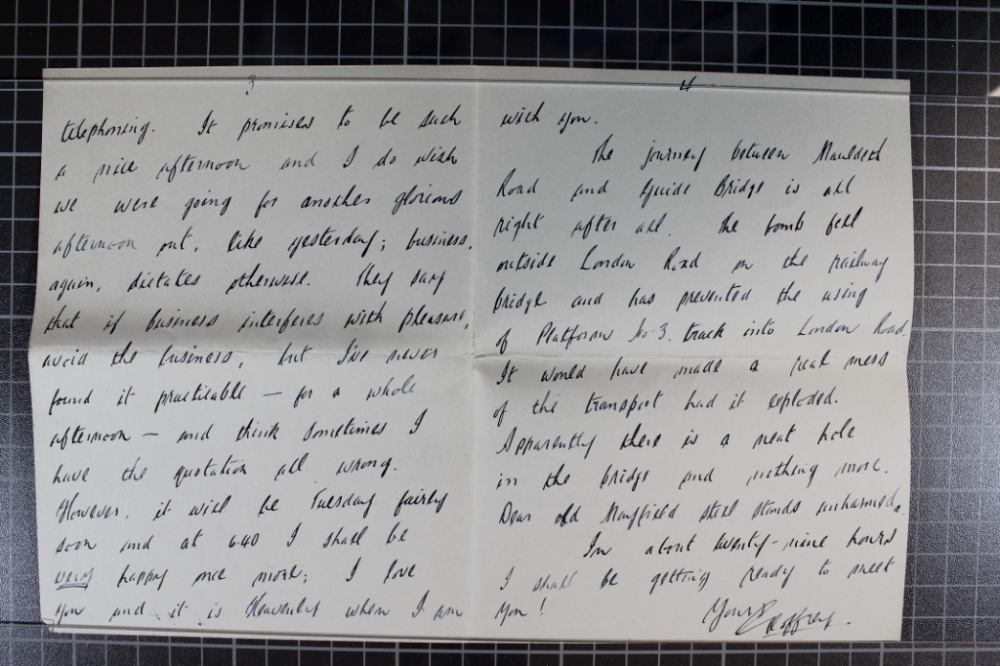 3
telephoning. It promises to be such
a nice afternoon and I do wish
we were going for another glorious
afternoon out, like yesterday; business,
again, dictates otherwise. They say
that if business interferes with pleasure,
avoid the business, but I've never
found it practicable — for a whole
afternoon — and think sometimes I
have the quotation all wrong.
However, it will be Tuesday fairly
soon and at 640 I shall be
very happy once more; I love
you and it is Heavenly when I am
4
with you.
The journey between Mauldeth
Road and Guide Bridge is all
right after all. The bomb fell
outside London Road on the railway
bridge and has prevented the using
of Platform No 3. track into London Road.
It would have made a real mess
of the transport had it exploded.
Apparently there is a neat hole
in the bridge and nothing more.
Dear old Mayfield still stands unharmed.
In about twenty-nine hours
I shall be getting ready to meet
you!
Yours Geoffrey.